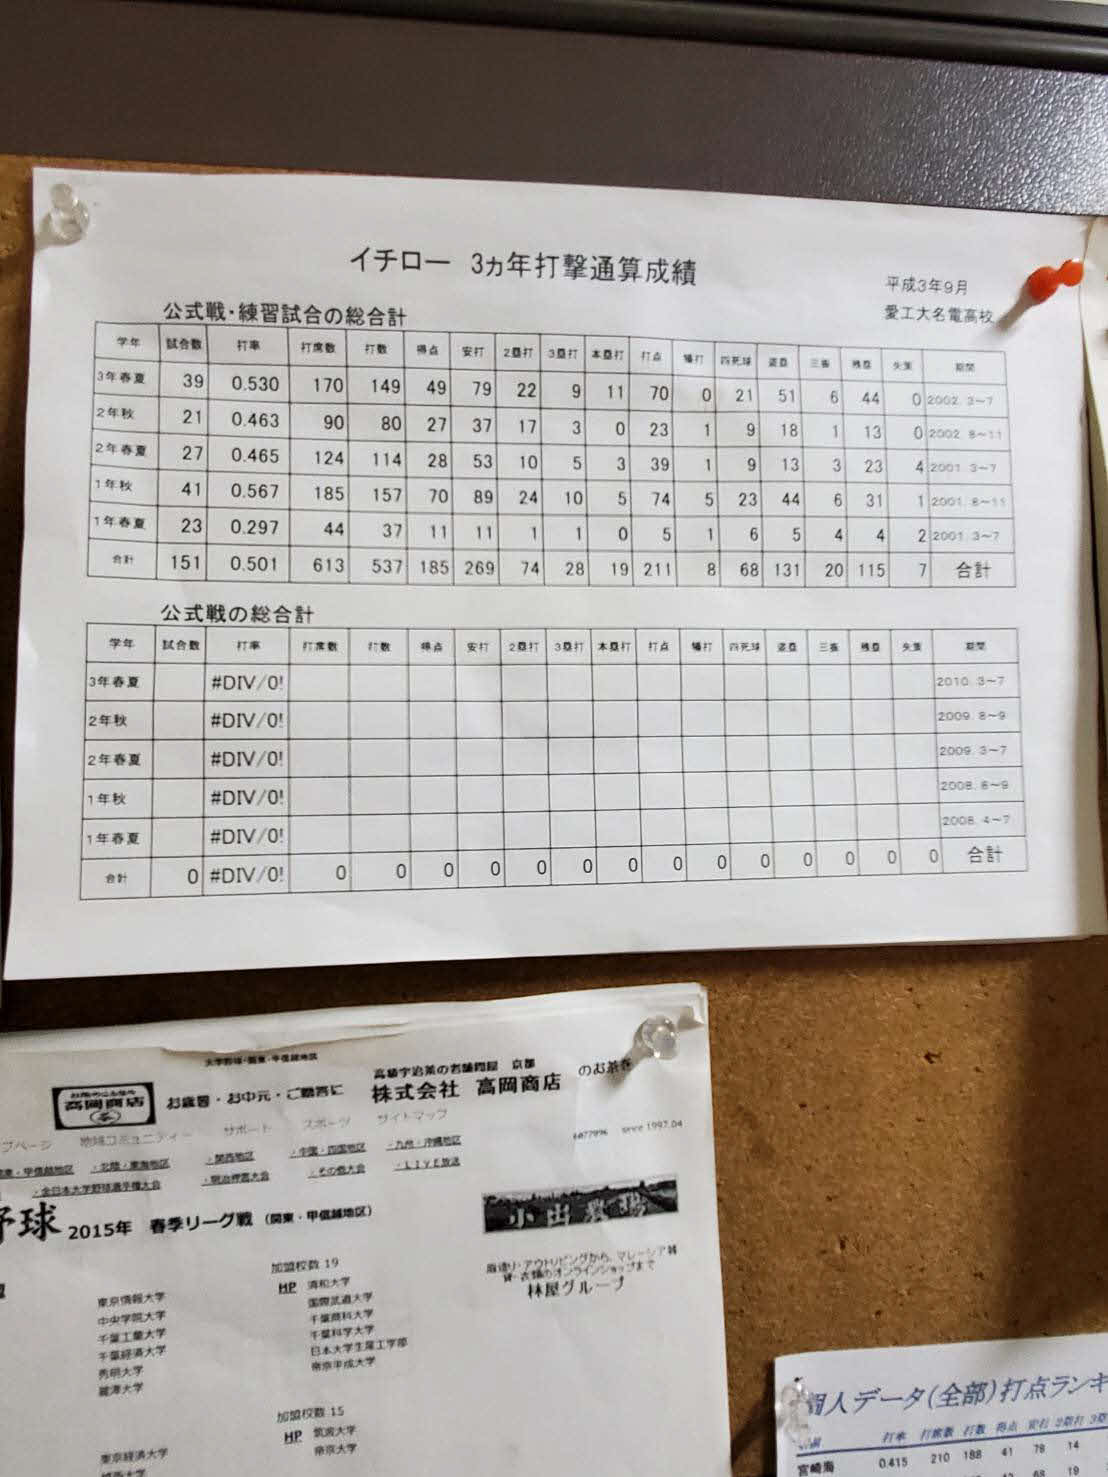 イチロー 3ヵ年打撃通算成績
平成3年9月
愛工大名電高校
公式戦・練習試合の総合計
学年 試合数 打率 打席数 打数 得点 安打 2塁打 3塁打 本塁打 打点 犠打 四死球 盗塁 三振 残塁 失策 期間
3年春夏 39 0.530 170 149 49 79 22 9 11 70 0 21 51 6 44 0 2002.3~7
2年秋 21 0.463 90 80 27 37 17 3 0 23 1 9 18 1 13 0 2002.8~11
2年春夏 27 0.465 124 114 28 53 10 5 3 39 1 9 13 3 23 4 2001.3~7
1年秋 41 0.567 185 157 70 89 24 10 5 74 5 23 44 6 31 1 2001.8~11
1年春夏 23 0.297 44 37 11 11 1 1 0 5 1 6 5 4 4 2 2001.3~7
合計 151 0.501 613 537 185 269 74 28 19 211 8 68 131 20 115 7 合計
公式戦の総合計
学年 試合数 打率 打席数 打数 得点 安打 2塁打 3塁打 本塁打 打点 犠打 四死球 盗塁 三振 残塁 失策 期間
3年春夏 #DIV/0! 2010.3~7
2年秋 #DIV/0! 2009.8~9
2年春夏 #DIV/0! 2009.3~7
1年秋 #DIV/0! 2008.8~9
1年春夏 #DIV/0! 2008.4~7
合計 0 #DIV/0! 0 0 0 0 0 0 0 0 0 0 0 0 0 0 合計
大学野球・関東・甲信越地区
高岡商店
お歳暮・お中元・ご贈答に
高級宇治茶の老舗問屋 京都
株式会社 高岡商店 のお茶を
プページ 地域コミュニティー サポート スポーツ サイトマップ
6077996 since 1997.04
関東・甲信越地区 ・北陸・東海地区 ・関西地区 ・中国・四国地区 ・九州・沖縄地区
・全日本大学野球選手権大会 ・明治神宮大会 ・その他大会 ・LIVE放送
野球 2015年 春季リーグ戦 (関東・甲信越地区)
小田農場
林屋グループ
加盟校数 19
東京情報大学
中央学院大学
千葉工業大学
千葉経済大学
秀明大学
麗澤大学
HP 清和大学
国際武道大学
千葉商科大学
千葉科学大学
日本大学生産工学部
帝京平成大学
加盟校数 15
東京経済大学
HP 筑波大学
帝京大学
個人データ(全部)打点ランキ
打率 打席数 打数 得点 安打 2塁打 3塁
宮崎海 0.415 210 188 41 78 14
68 19